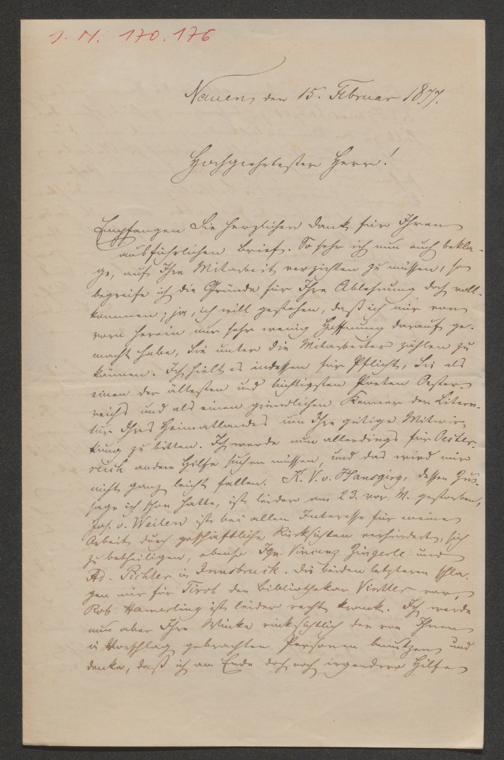 J. N. 170.176
Nauen, den 15. Februar 1877.
Hochgeehrtester Herr!
Empfangen Sie herzlichen Dank für Ihren
ausführlichen Brief. So sehr ich nun auch bekla-
ge, auf Ihre Mitarbeit verzichten zu müssen, so
begreife ich die Gründe für Ihre Ablehnung doch voll-
kommen; ja, ich will gestehen, daß ich mir von
vorn herein nur sehr wenig Hoffnung darauf ge-
macht habe, Sie unter die Mitarbeiter zählen zu
können. Ich hielt es indessen für Pflicht, Sie als
einen der ältesten und tüchtigsten Poeten Oester-
reichs und als einen gründlichen Kenner der Litera-
tur Ihres Heimatlandes um Ihre gütige Mitwir-
kung zu bitten. Ich werde nun allerdings für Oester-
reich andere Hilfe suchen müssen, und das wird mir
nicht ganz leicht fallen. K. V. v. Hansgirg, dessen Zu-
sage ich schon hatte, ist leider am 23. vor. M. gestorben,
Jos. v. Weilen ist bei allem Interesse für meine
Arbeit durch geschäftliche Rücksichten verhindert, sich
zu betheiligen, ebenso Ign. Vincenz Zingerle und
Ad. Pichler in Innsbruck. Die beiden letzteren schla-
gen mir für Tirol den Bibliothekar Vintler vor,
Rob. Hamerling ist leider recht krank. Ich werde
nun aber Ihre Winke rücksichtlich der von Ihnen
in Vorschlag gebrachten Personen benutzen und
denke, daß ich am Ende doch noch irgendwo Hilfe